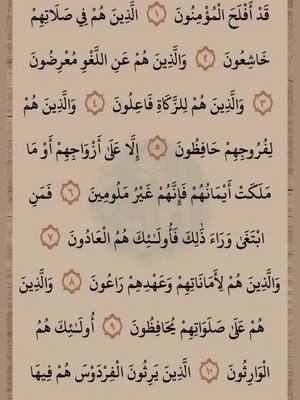 قَدْ أَفْلَحَ الْمُؤْمِنُونَ ١ الَّذِينَ هُمْ فِي صَلَاتِهِمْ
خَاشِعُونَ ٢ وَالَّذِينَ هُمْ عَنِ اللَّغْوِ مُعْرِضُونَ
٣ وَالَّذِينَ هُمْ لِلزَّكَاةِ فَاعِلُونَ ٤ وَالَّذِينَ هُمْ
لِفُرُوجِهِمْ حَافِظُونَ ٥ إِلَّا عَلَىٰ أَزْوَاجِهِمْ أَوْ مَا
مَلَكَتْ أَيْمَانُهُمْ فَإِنَّهُمْ غَيْرُ مَلُومِينَ ٦ فَمَنِ
ابْتَغَىٰ وَرَاءَ ذَٰلِكَ فَأُولَـٰئِكَ هُمُ الْعَادُونَ ٧
وَالَّذِينَ هُمْ لِأَمَانَاتِهِمْ وَعَهْدِهِمْ رَاعُونَ ٨ وَالَّذِينَ
هُمْ عَلَىٰ صَلَوَاتِهِمْ يُحَافِظُونَ ٩ أُولَـٰئِكَ هُمُ
الْوَارِثُونَ ١٠ الَّذِينَ يَرِثُونَ الْفِرْدَوْسَ هُمْ فِيهَا